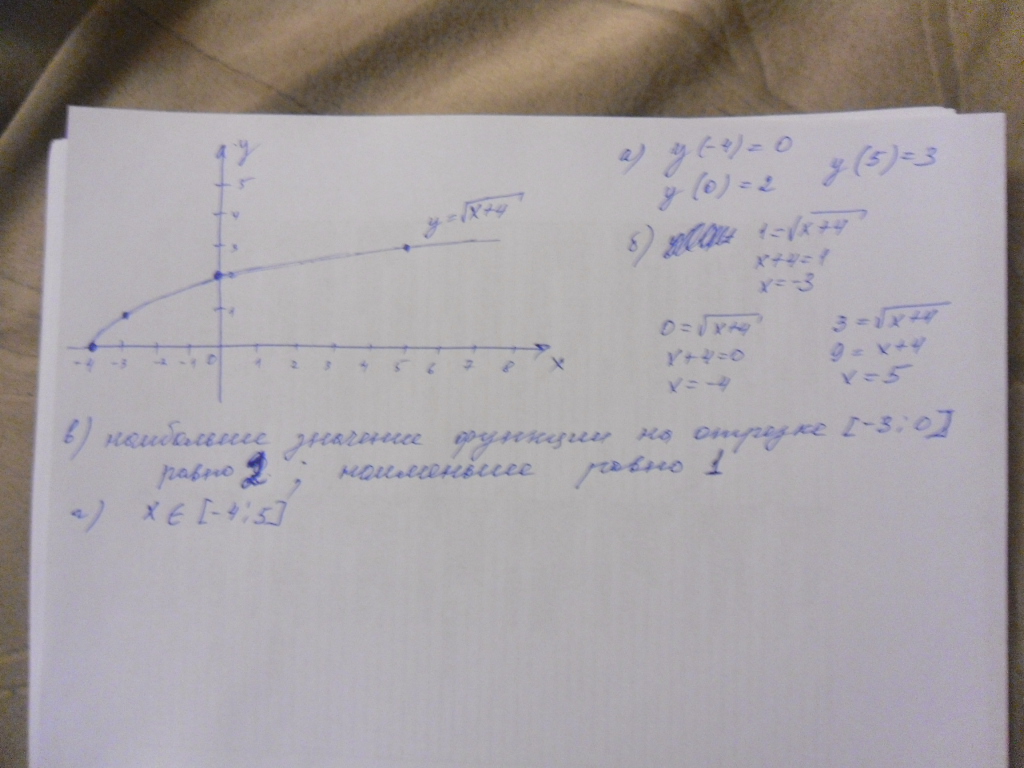 y
5
4
3
2
1
-4 -3 -2 -1 0 1 2 3 4 5 6 7 8 x
y = √x+4
а) y(-4) = 0 y(5) = 3
y(0) = 2
б) 1 = √x+4
x+4=1
x = -3
0 = √x+4
x+4=0
x = -4
3 = √x+4
9 = x+4
x = 5
в) наибольшее значение функции на отрезке [-3;0]
равно 2 ; наименьшее равно 1
г) x ∈ [-4;5]